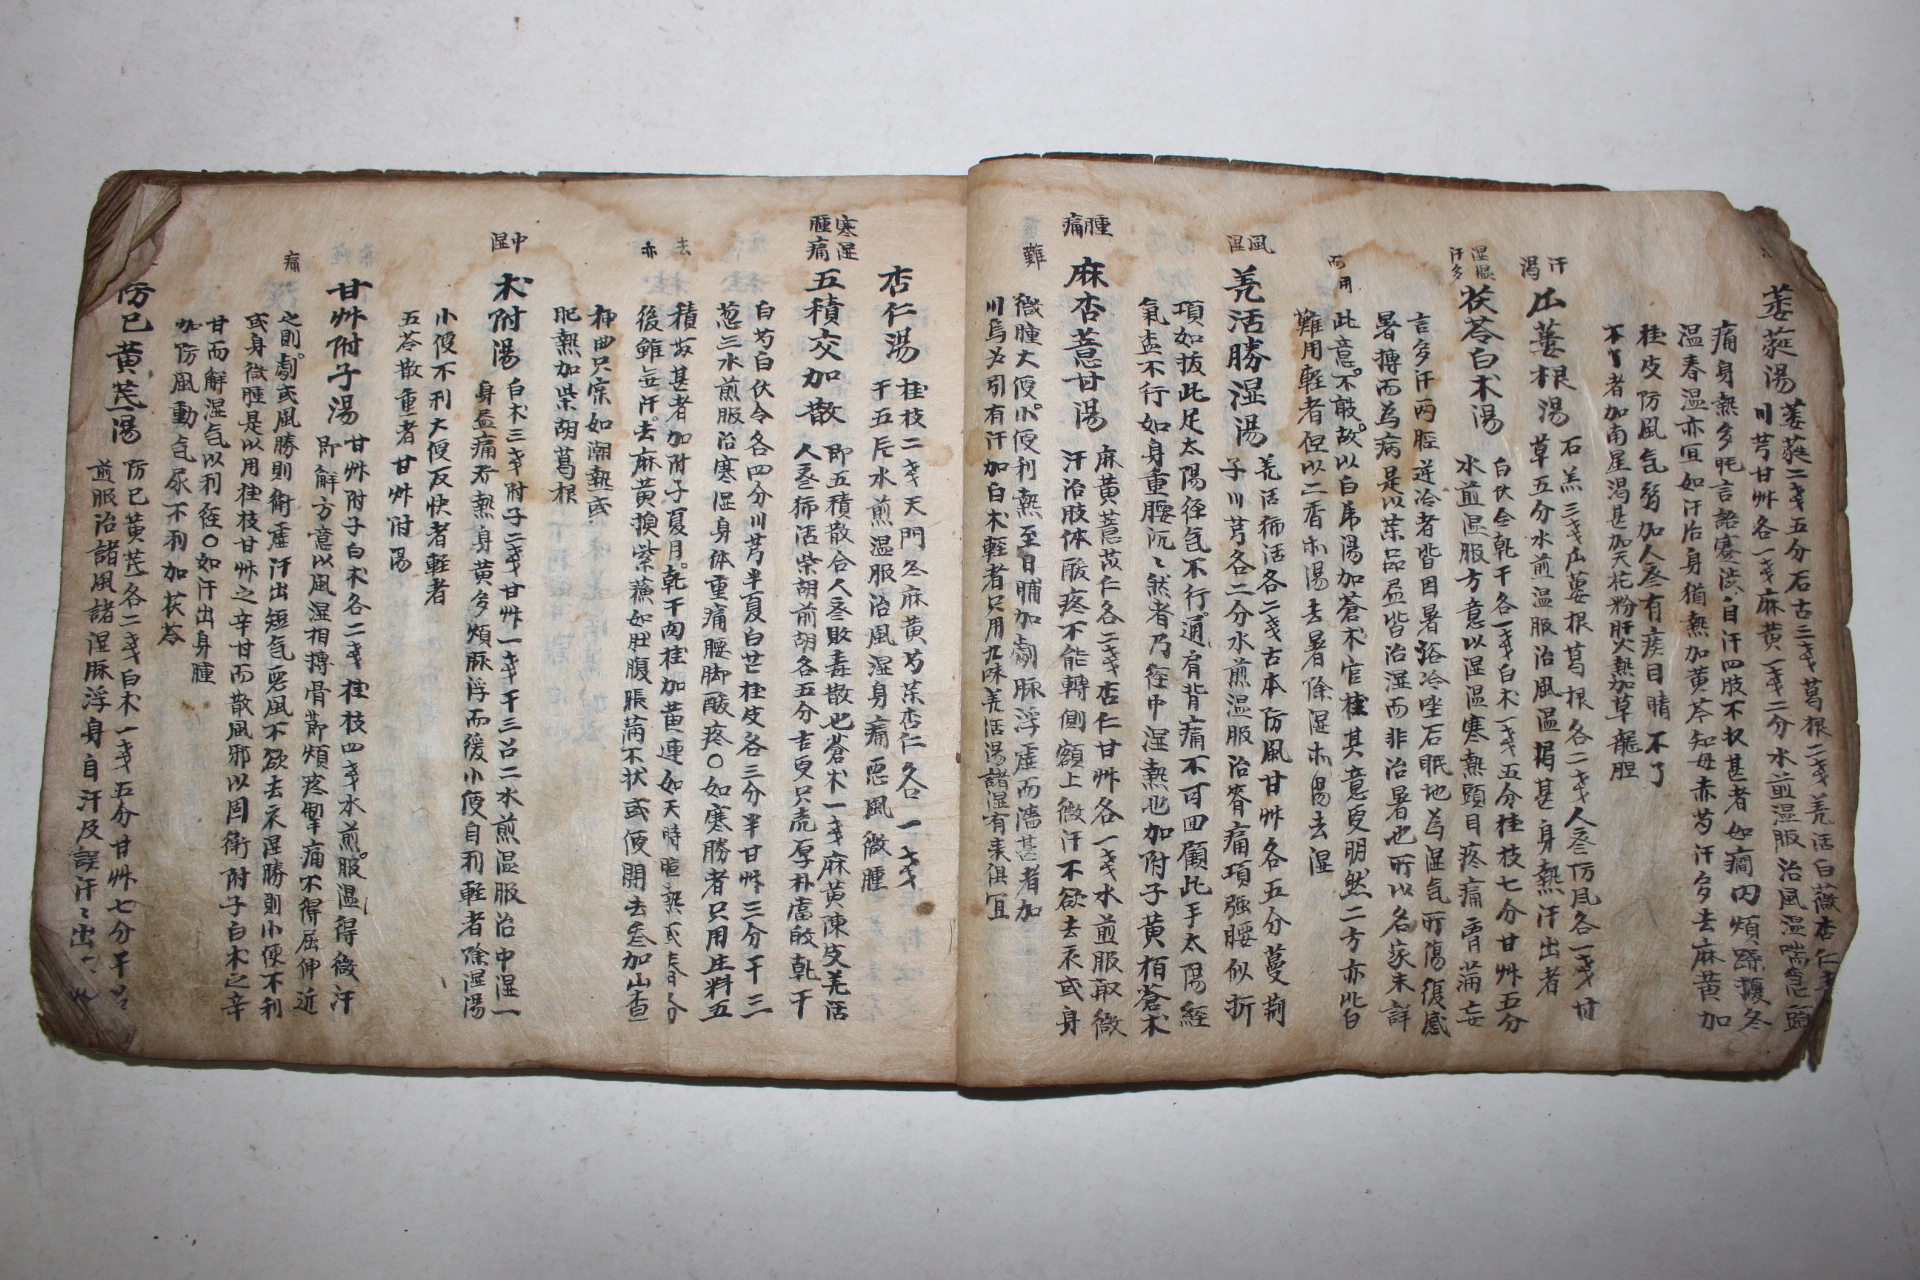 萎蕤湯
萎蕤二戔五分石古三戔葛根二戔羌活白薇杏仁
川芎甘艸各一戔麻黄一戔二分水煎温服治風温喘息頭
痛身熱多眠言語蹇澁自汗四肢不收甚者如癎内煩躁擾冬
温春温亦宜如汗治身猶熱加黄芩知母赤芍汗多去麻黄加
桂皮防風气弱加人參有痰目睛不了
不了者加南星渴甚加天花粉肝火熱加草龍胆
汗
渴
瓜蔞根湯
石羔三戔瓜蔞根葛根各二戔人參防風各一戔甘
草五分水煎温服治風温渴甚身熱汗出者
湿温
汗多
茯苓白术湯
白伏令乾干各一戔白术一戔五分桂枝七分甘艸五分
水煎温服方意以湿温寒熱頭目疼痛胷滿妄
言多汗两脛逆冷者皆因暑浴冷坐石眠地為湿气所傷復感
暑搏而為病是以藥品虽皆治湿而非治暑也所以名家未詳
此意不敢故以白虎湯加蒼术官桂其意更明然二方亦此白
難用軽者但以二香朮湯去暑除湿朮湯去湿
風
湿
羌活勝湿湯
羌活獨活各二戔古本防風甘艸各五分蔓荊
子川芎各二分水煎温服治脊痛項強腰似折
項如拔此足太陽徑气不行通肩背痛不可回顧此手太陽経
氣盃不行如身重腰沉ゝ然者乃徑中湿熱也加附子黄栢蒼术
腫
痛
麻杏薏甘湯
麻黄薏苡仁各二戔杏仁甘艸各一戔水煎服取微
汗治肢体酸疼不能轉側額上微汗不欲去衣或身
難
微腫大便小便利熱至日晡加劇脉浮虛而濇甚者加
川烏為引有汗加白术軽者只用九味羌活湯諸湿有表俱宜
杏仁湯
桂枝二戔天門冬麻黄芍藥杏仁各一戔
干五片水煎温服治風湿身痛惡風微腫
寒湿
腫痛
五積交加散
即五積散合人參敗毒散也蒼术一戔麻黄陳皮羌活
人參獨活柴胡前胡各五分吉更只壳厚朴當敀乾干
白芍白伏令各四分川芎半夏白芷桂皮各三分半甘艸三分干三
葱三水煎服治寒湿身体重痛腰脚酸疼〇如寒勝者只用生料五
積散甚者加附子夏月乾干肉桂加黄連如天時暄熱或春分
後雖無汗去麻黄換紫蘓如肚腹脹滿不状或便閉去參加山查
柿曲只宲如潮熱或
肥熱加柴胡葛根
中
湿
术附湯
白术三戔附子二戔甘艸一戔干三召二水煎温服治中湿一
身盡痛發熱身黄多煩脉浮而緩小便自利軽者除湿湯
小便不利大便反快者軽者
五苓散重者甘艸附湯
痛
甘艸附子湯
甘艸附子白术各二戔桂枝四戔水煎服温得微汗
即解方意以風湿相搏骨節煩疼掣痛不得屈伸近
之則劇或風勝則衛虛汗出短气惡風不欲去衣湿勝則小便不利
或身微腫是以用桂枝甘艸之辛甘而散風邪以固衛附子白术之辛
甘而解湿气以利徑〇如汗出身腫
加防風動气尿不利加茯苓
防已黄芪湯
防已黄芪各二戔白术一戔五分甘艸七分干
煎服治諸風諸湿脉浮身自汗及誤汗ゝ出